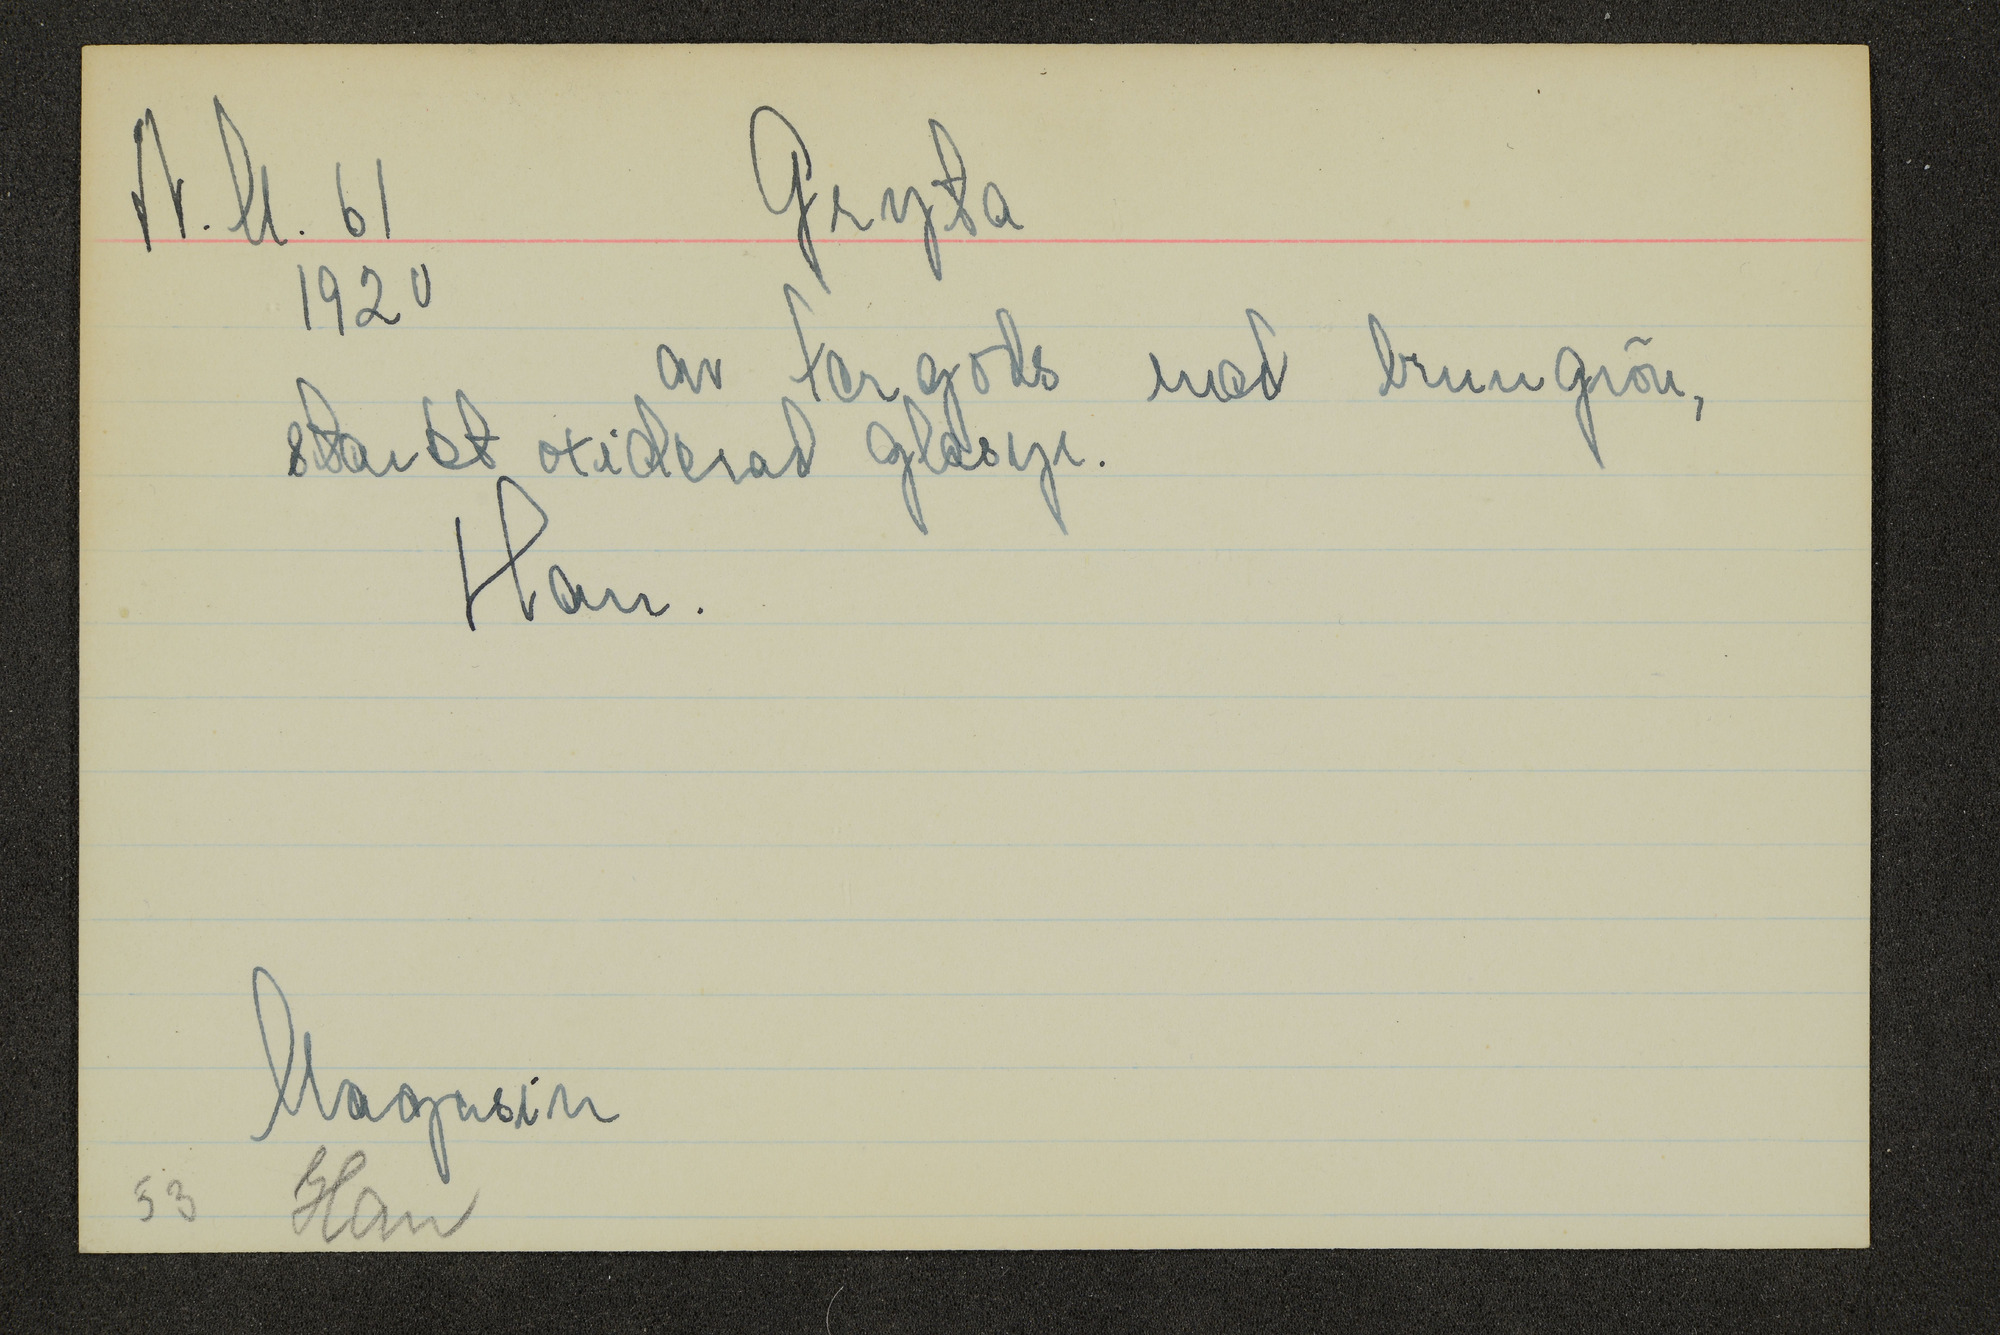 N.M. 61 Gryta
1920
av lergods med brungrön,
starkt oxiderad glasyr.
Han.
Magasin
53 Han